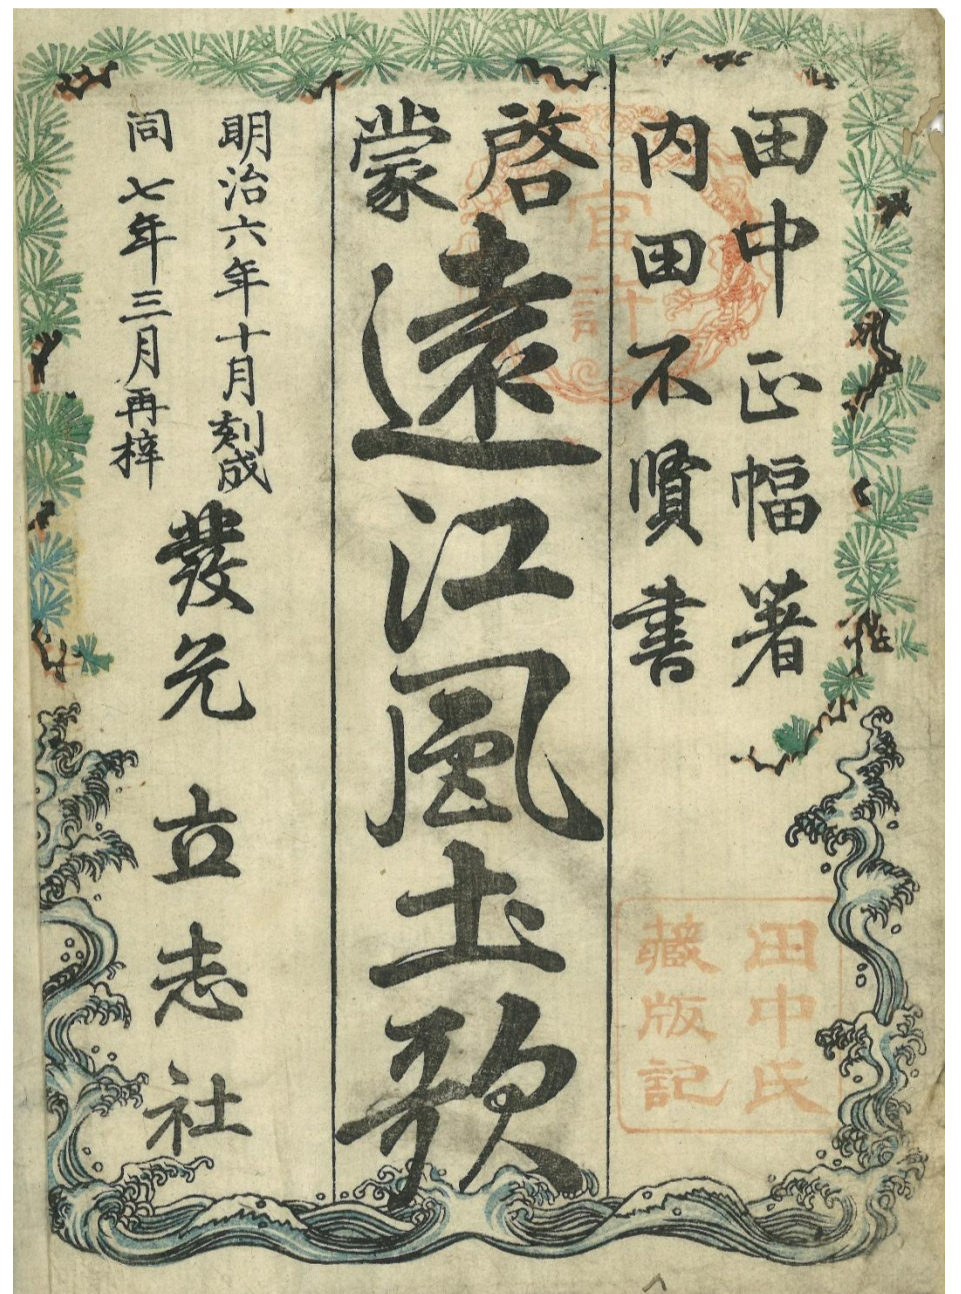 田中正幅著
内田不賢書
官許
田中氏
藏版記
啓蒙
遠江風土歌
明治六年十月刻成
同七年三月再梓
發兌 立志社